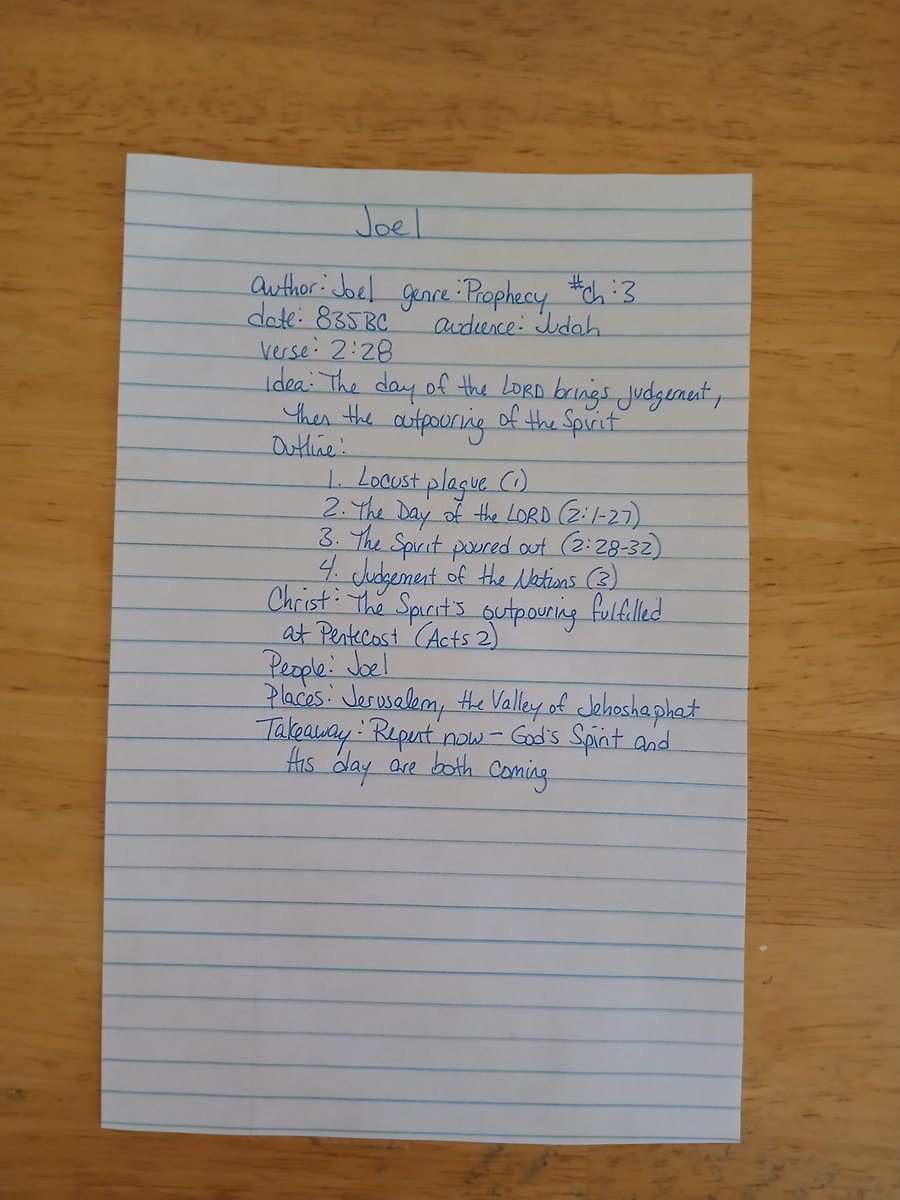 Joel
author: Joel genre: Prophecy #ch: 3
date: 835BC audience: Judah
verse: 2:28
idea: The day of the LORD brings judgement,
then the outpouring of the Spirit
Outline:
1. Locust plague (1)
2. The Day of the LORD (2:1-27)
3. The Spirit poured out (2:28-32)
4. Judgement of the Nations (3)
Christ: The Spirit's outpouring fulfilled
at Pentecost (Acts 2)
People: Joel
Places: Jerusalem, the Valley of Jehoshaphat
Takeaway: Repent now - God's Spirit and
His day are both coming